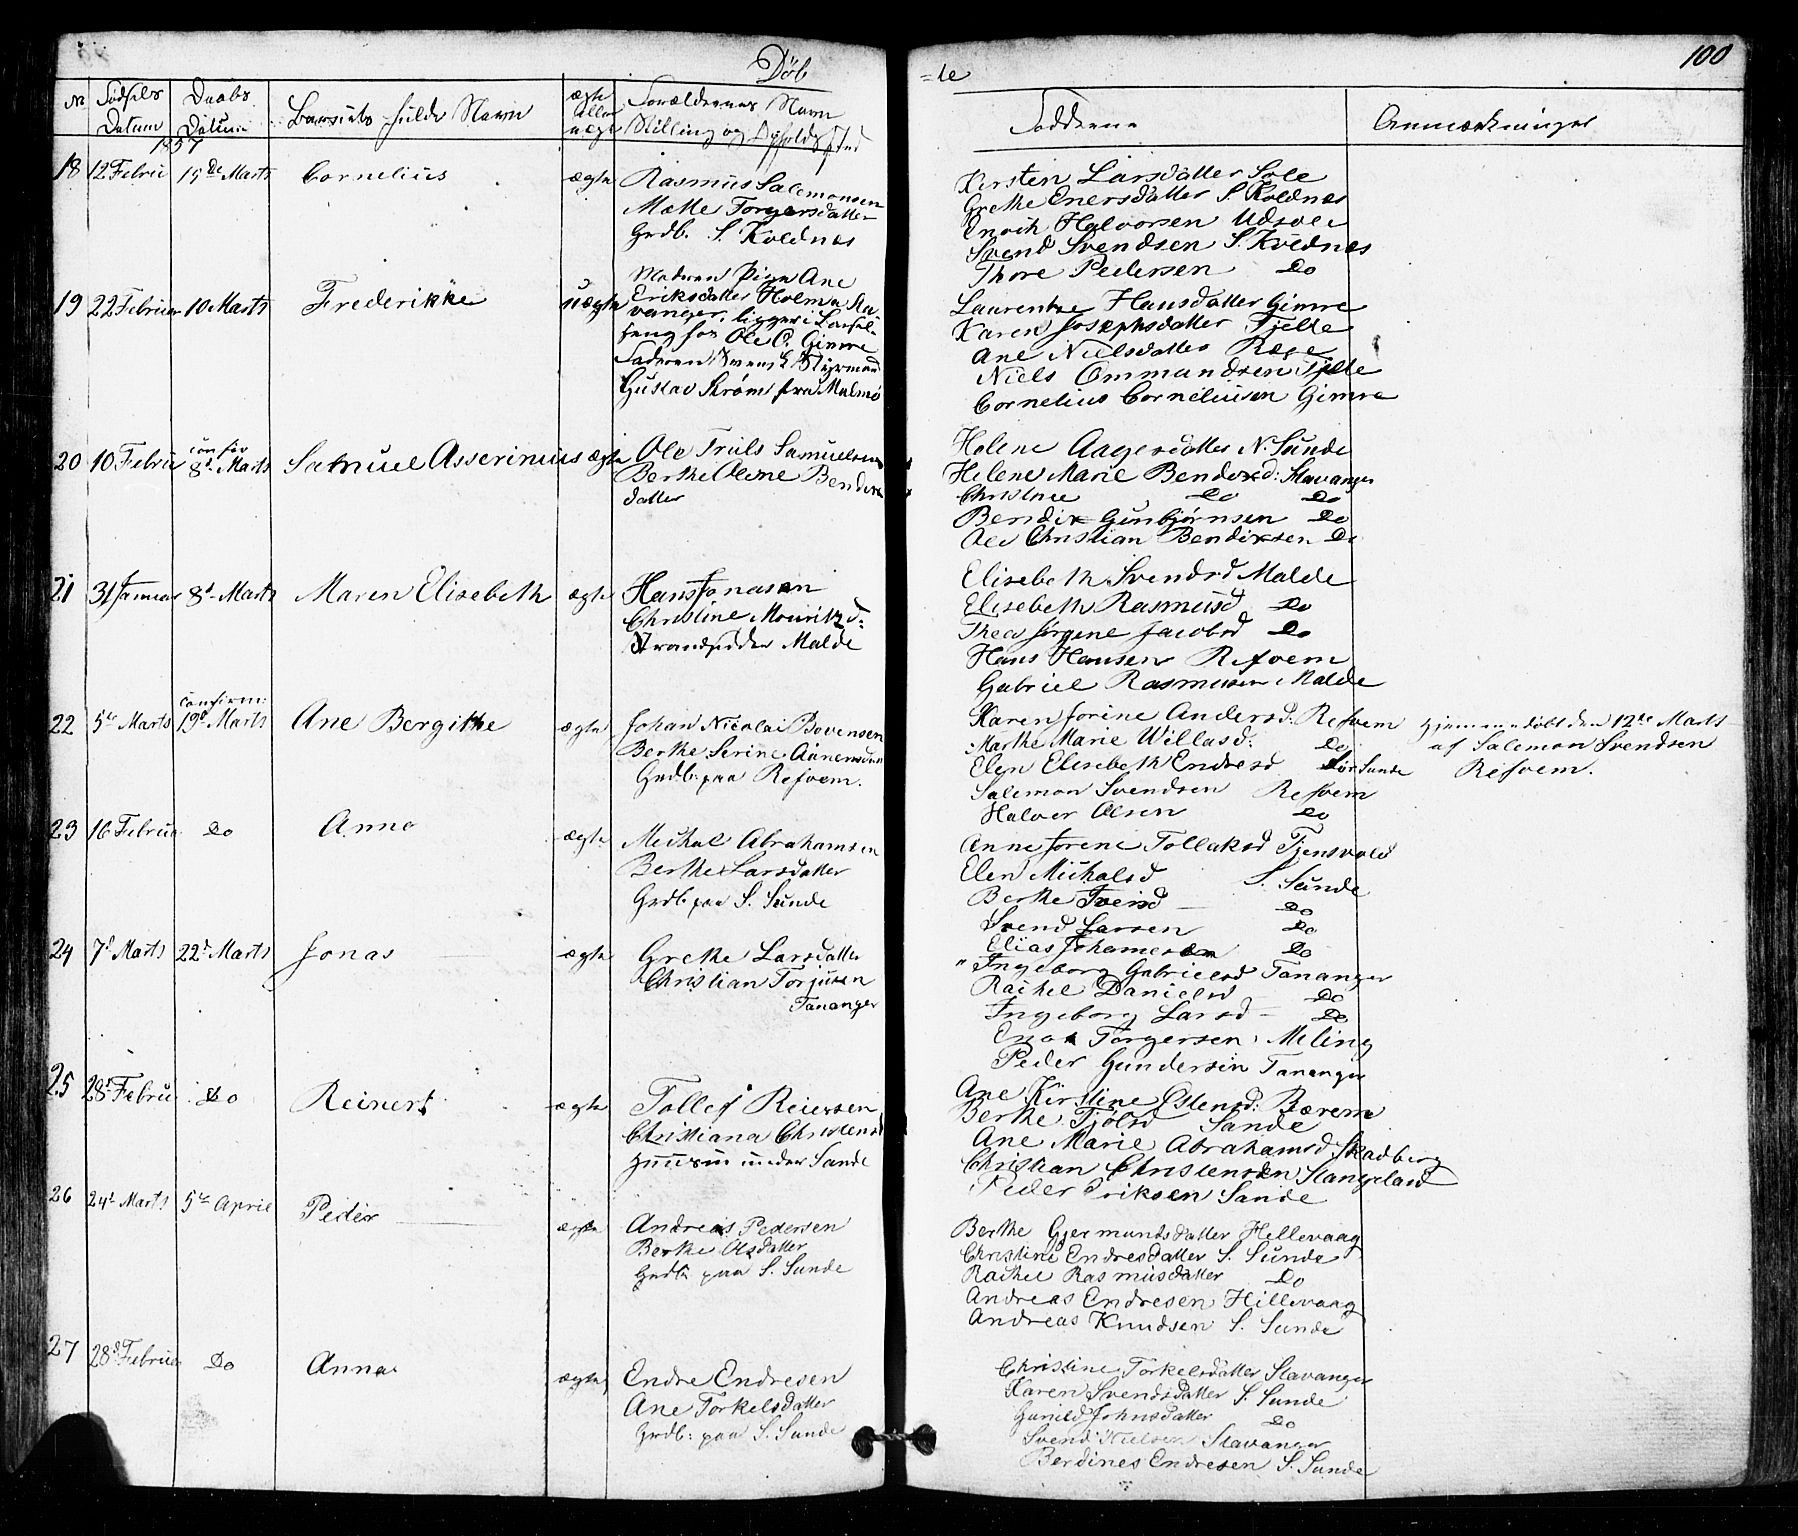 Døb
=te
100
No
Fødsels Datum
Daabs Datum
Barnets fulde Navn
ægte eller uægte
Forældrenes Navn
Stilling og Opholdssted
Fadderne
Anmærkninger
1857
18 12 Februar 15de Marts Cornelius ægte Rasmus Salemonsen
Mætte Torgersdatter
Grdb. S. Koldnes
Kirsten Larsdatter Sole
Grethe Enersdatter S. Koldnes
Enoch Halvorsen Udsole
Svend Svendsen S. Kvednes
Thore Pedersen Do
19 22 Februar 10 Marts Frederikke uægte Moderen Pige Ane
Eriksdatter Holme Sta-
vanger, ligger i Barsel-
seng hos Ole O. Gimre
Faderen Svensk Styrmand
Gustav Strøm fra Malmø
Laurentze Hansdatter Gimre
Karen Josephsdatter Tjelte
Ane Nielsdatter Ræge
Niels Ommundsen Tjelte
Cornelius Corneliusen Gimre
20 10 Februar confir 8d Marts Samuel Asserinius ægte Ole Truls Samuelsen
Berthe Olene Bendix
datter
Helene Aagesdatter N. Sunde
Helene Marie Bendixd: Stavanger
Christine Do Do
Bendix Gunbjørnsen Do
Ole Christian Bendixsen Do
21 31 Januar 8d Marts Maren Elisebeth ægte Hans Jonasen
Christine Mouritzd:
Strandsidder Malde
Elisebeth Svendsd Malde
Elisebeth Rasmusd Do
Thea Jørgine Jacobsd Do
Hans Hansen Refvem
Gabriel Rasmusen Malde
22 5te Marts confirm: 19d Marts Ane Bergithe ægte Johan Nicolai Bovensen
Berthe Serine Aanensdatter
Grdb: paa Refvem.
Karen Jorine Andersd: Refvem
Marthe Marie Willasd: Do
Elen Elisebeth Endresd Nør Sunde
Salemon Svendsen Refvem
Halvor Olsen Do
Hjemmedøbt den 12te Marts
af Salemon Svendsen
Refvem.
23 16 Februar Do Anna ægte Michal Abrahamsen
Berthe Larsdatter
Grdb: paa S. Sunde
Anne Jorine Tollaksd Tjensvold
Elen Michalsd S. Sunde
Berthe Tveisd Do
Svend Larsen Do
Elias Johannesen Do
24 7d Marts 22d Marts Jonas ægte Grethe Larsdatter
Christian Torjusen
Tananger
Ingeborg Gabrielsd Tananger
Rachel Danielsd Do
Ingeborg Larsd Do
Enok Torgersen Meling
Peder Gundersen Tananger
25 28d Februar Do Reinert ægte Tollef Reiersen
Christiana Christensd
Huusm under Sande
Ane Kirstine Ostensd: Bærem
Berthe Tjølsd Sande
Ane Marie Abrahamsd Skadberg
Christian Christensen Stangeland
Peder Eriksen Sande
26 24d Marts 5te April Peder ægte Andreas Pedersen
Berthe Olsdatter
Grdb: paa S. Sunde
Berthe Gjermundsdatter Hellevaag
Christine Endresdatter S. Sunde
Rachel Rasmusdatter Do
Andreas Endresen Hillevaag
Andreas Knudsen S. Sunde
27 28d Februar Do Anna ægte Endre Endresen
Ane Torkelsdatter
Grdb: paa S. Sunde
Christine Torkelsdatter Stavanger
Karen Svendsdatter S. Sunde
Gunild Johnsdatter Do
Svend Nielsen Stavanger
Berdines Endresen S. Sunde